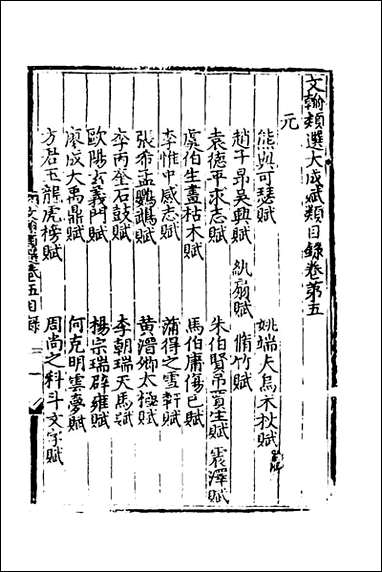 文翰類選大成賦類目錄卷第五
元
熊與可瑟賦　姚端夫烏木杖賦
趙子昂吳興賦　紈扇賦　脩竹賦
袁德平求志賦　朱伯賢弔賈生賦　震澤賦
虞伯生畫枯木賦　馬伯庸傷已賦
李惟中感志賦　蒲得之雲軒賦
張希孟鸚鵡賦　黄溍卿太極賦
李丙奎石鼓賦　李朝瑞天馬賦
歐陽玄義門賦　楊宗瑞辟雍賦
廖成大禹鼎賦　何克明雲夢賦
方君玉龍虎榜賦　周尚之科斗文字賦
文翰類選卷五目錄　一